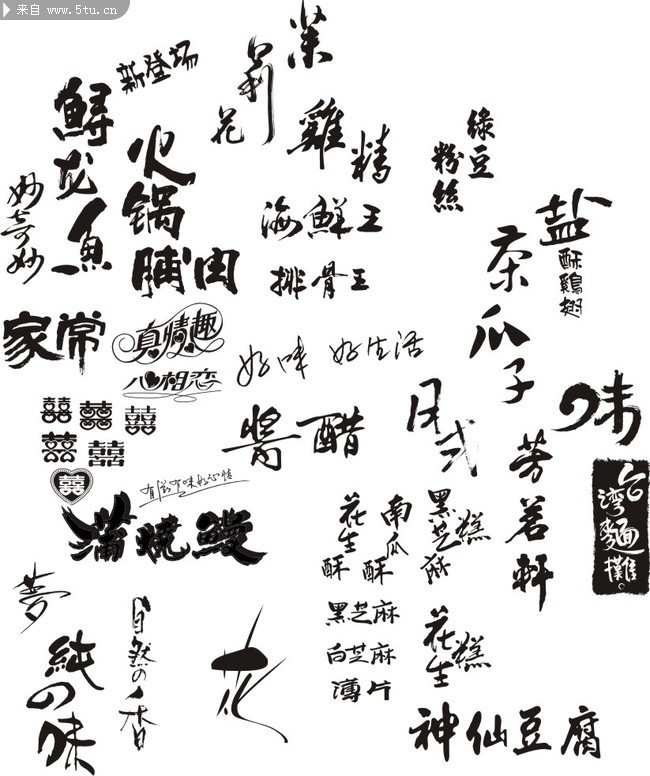 来自 www.5tu.cn
新登场
茉莉花
鲟龙鱼
火锅脯肉
雞精
绿豆
粉絲
妙奇妙
海鮮王
排骨王
盐酥鷄翅
茶瓜子
家常
真情趣
心相恋
好味 好生活
囍 囍 囍
囍 囍
囍
醬醋
日式
味
芳茗軒
台湾麵攤
有滋有味好心情
蒲燒鰻
花生酥
南瓜酥
黑芝麻糕
夢
純の味
自然の香
花
黑芝麻
白芝麻
薄片
花生糕
神仙豆腐